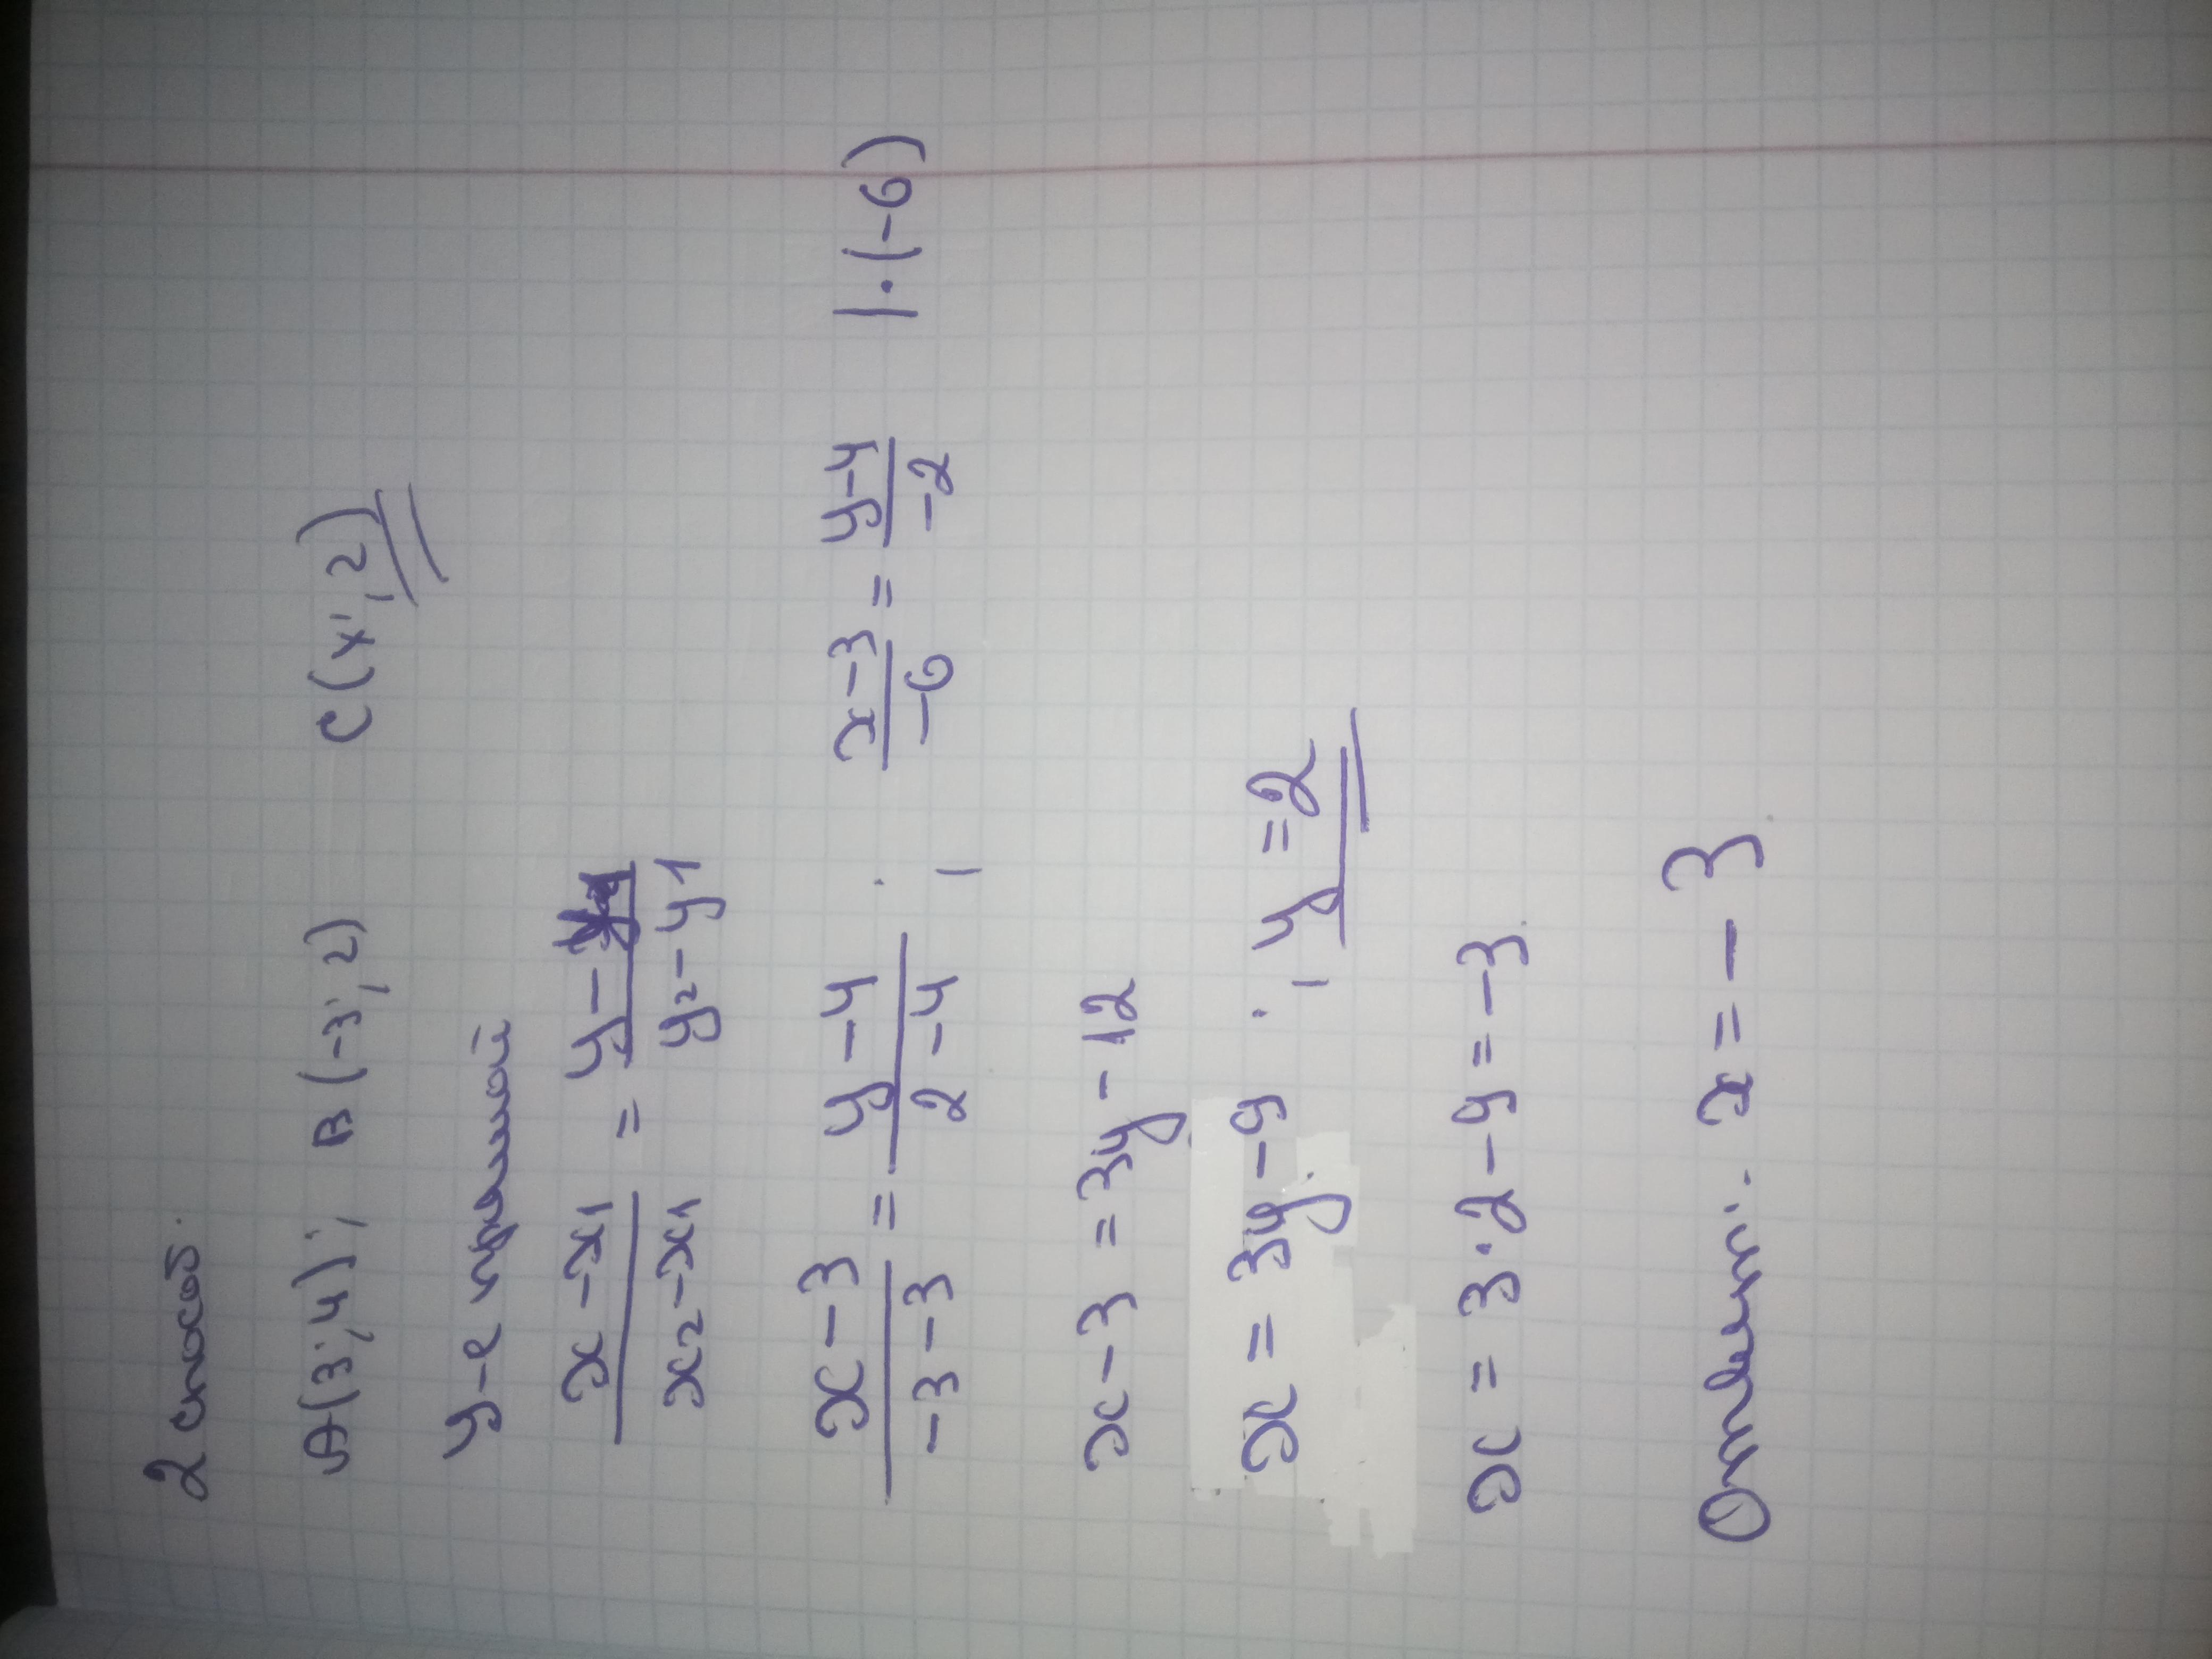 2 способ.
A(3; 4); B(-3; 2) C(x; 2)
y-е прямой
x-x1/x2-x1 = y-y1/y2-y1
x-3/-3-3 = y-4/2-4; x-3/-6 = y-4/-2 |·(-6)
x-3=3y-12
x=3y-9; y=2
x=3·2-9=-3
Ответ: x=-3